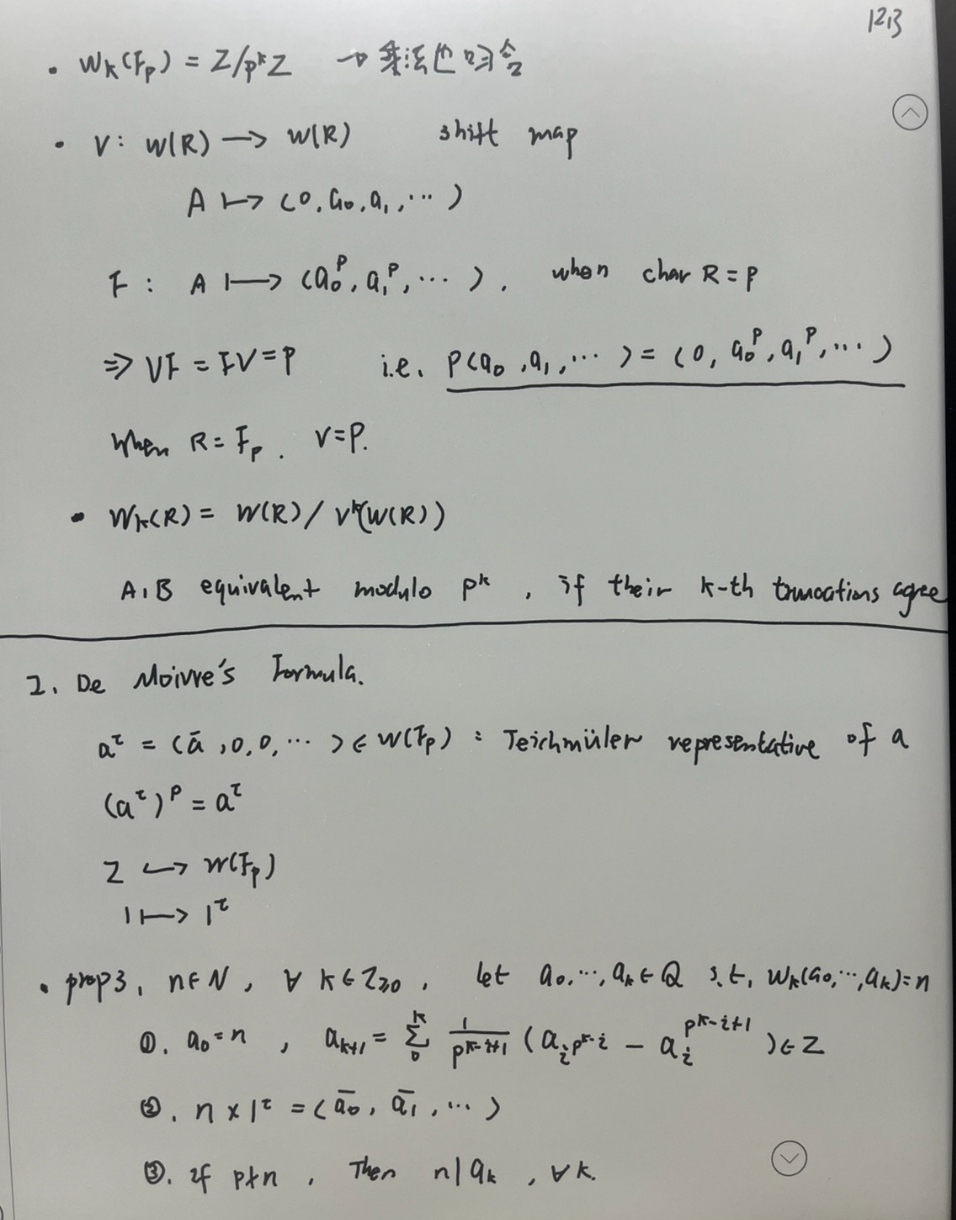 1213
• W_k(F_p) = Z/p^kZ → 乘法也吻合
• V: W(R) → W(R) shift map
A ↦ (0, a_0, a_1, ⋯)
F : A ↦ (a_0^p, a_1^p, ⋯). when char R = p
⇒ VF = FV = p i.e. p(a_0, a_1, ⋯) = (0, a_0^p, a_1^p, ⋯)
When R = F_p. V = p.
• W_k(R) = W(R)/V^k(W(R))
A, B equivalent modulo p^k, if their k-th truncations agree
2. De Moivre's Formula.
a^τ = (ā, 0, 0, ⋯) ∈ W(F_p) : Teichmüler representative of a
(a^τ)^p = a^τ
Z ↪ W(F_p)
1 ↦ 1^τ
• prop3, n∈N, ∀ k∈Z_≥0, let a_0, ⋯, a_k ∈ Q s.t, W_k(a_0, ⋯, a_k) = n
①. a_0 = n, a_{k+1} = Σ_0^k 1/p^{k-i+1} (a_i^{p^{k-i}} - a_i^{p^{k-i+1}}) ∈ Z
②. n × 1^τ = (ā_0, ā_1, ⋯)
③. if p∤n, Then n|a_k, ∀k.